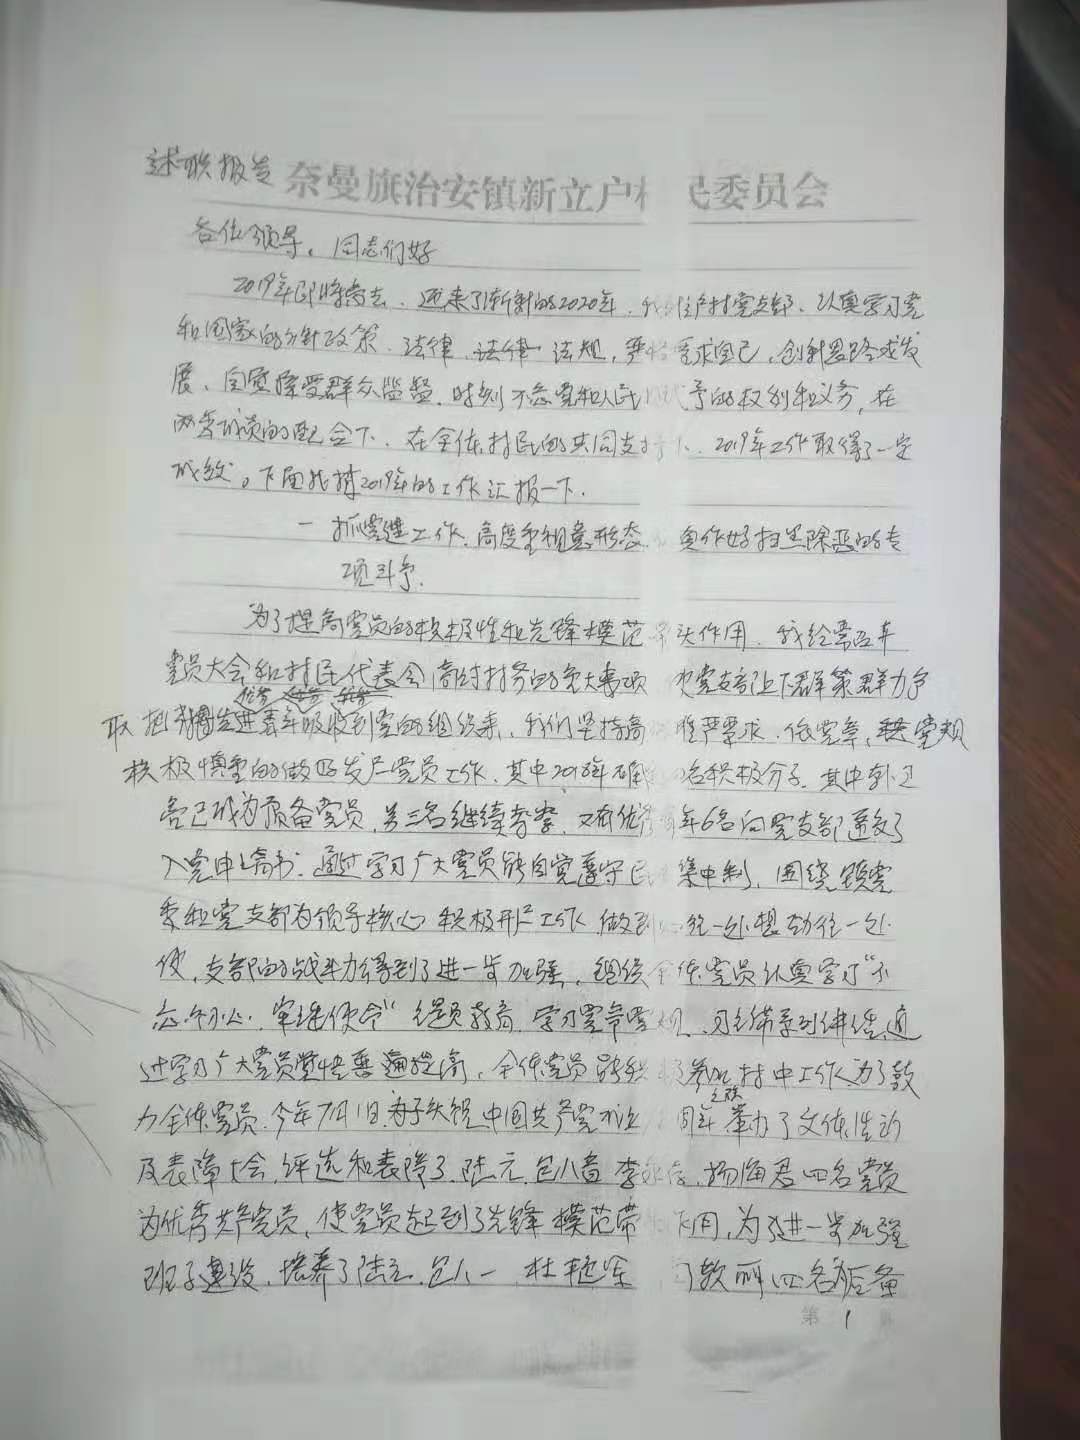 述职报告 奈曼旗治安镇新立户村民委员会
各位领导。同志们好
2019年即将离去、迎来了崭新的2020年、我 户村党支部、认真学习党
和国家的方针政策、法律、法律 法规，严格要求自己，创新思路求发
展、自觉接受群众监督、时刻不忘党和人民 予的权利和义务，在
两委成员的配合下、在全体村民的共同支持下、2019年工作取得了一定
成效。下面我将2019年的工作汇报一下.
一 抓党建工作、高度重视意形态、 真作好扫黑除恶的专
项斗争.
为了提高党员的积极性和先锋模范 头作用、我经常召开
党员大会和村民代表会商讨村务的重大事项 使党支部上下群策群力争
取把 优秀 先进青年吸收到党的组织来、我们坚持高 准严要求、依党章、 党规
积极慎重的做好发展党员工作、其中2018年确 名积极分子、其中
已成为预备党员、另三名继续考察、又有优秀 年6名向党支部递交了
入党申请书、通过学习广大党员能自觉遵守民 集中制、围绕镇党
委和党支部为领导核心 积极开展工作 做到 往一处想劲往一处
使、支部的战斗力得到了进一步加强、组织全体党员认真学习“不
忘初心、牢记使命”主题教育、学习党章党规、习主席系列讲话、通
过学习广大党员觉悟普遍提高、全体党员能积极参加村中工作、为了鼓
力全体党员、今年7月1日为了庆祝中国共产党成立 周年 之际 举办了文体活动
及表障大会、评选和表障了、陆元、包八音 李 存、杨海君四名党员
为优秀共产党员、使党员起到了先锋模范带 作用，为了进一步加强
班子建设、培养了陆元、包八一、杜艳军 四名后备
第 1 页